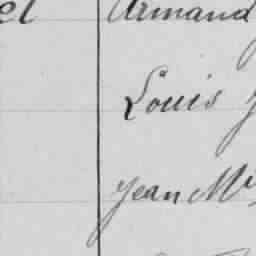 el Armand
Louis J
Jean M